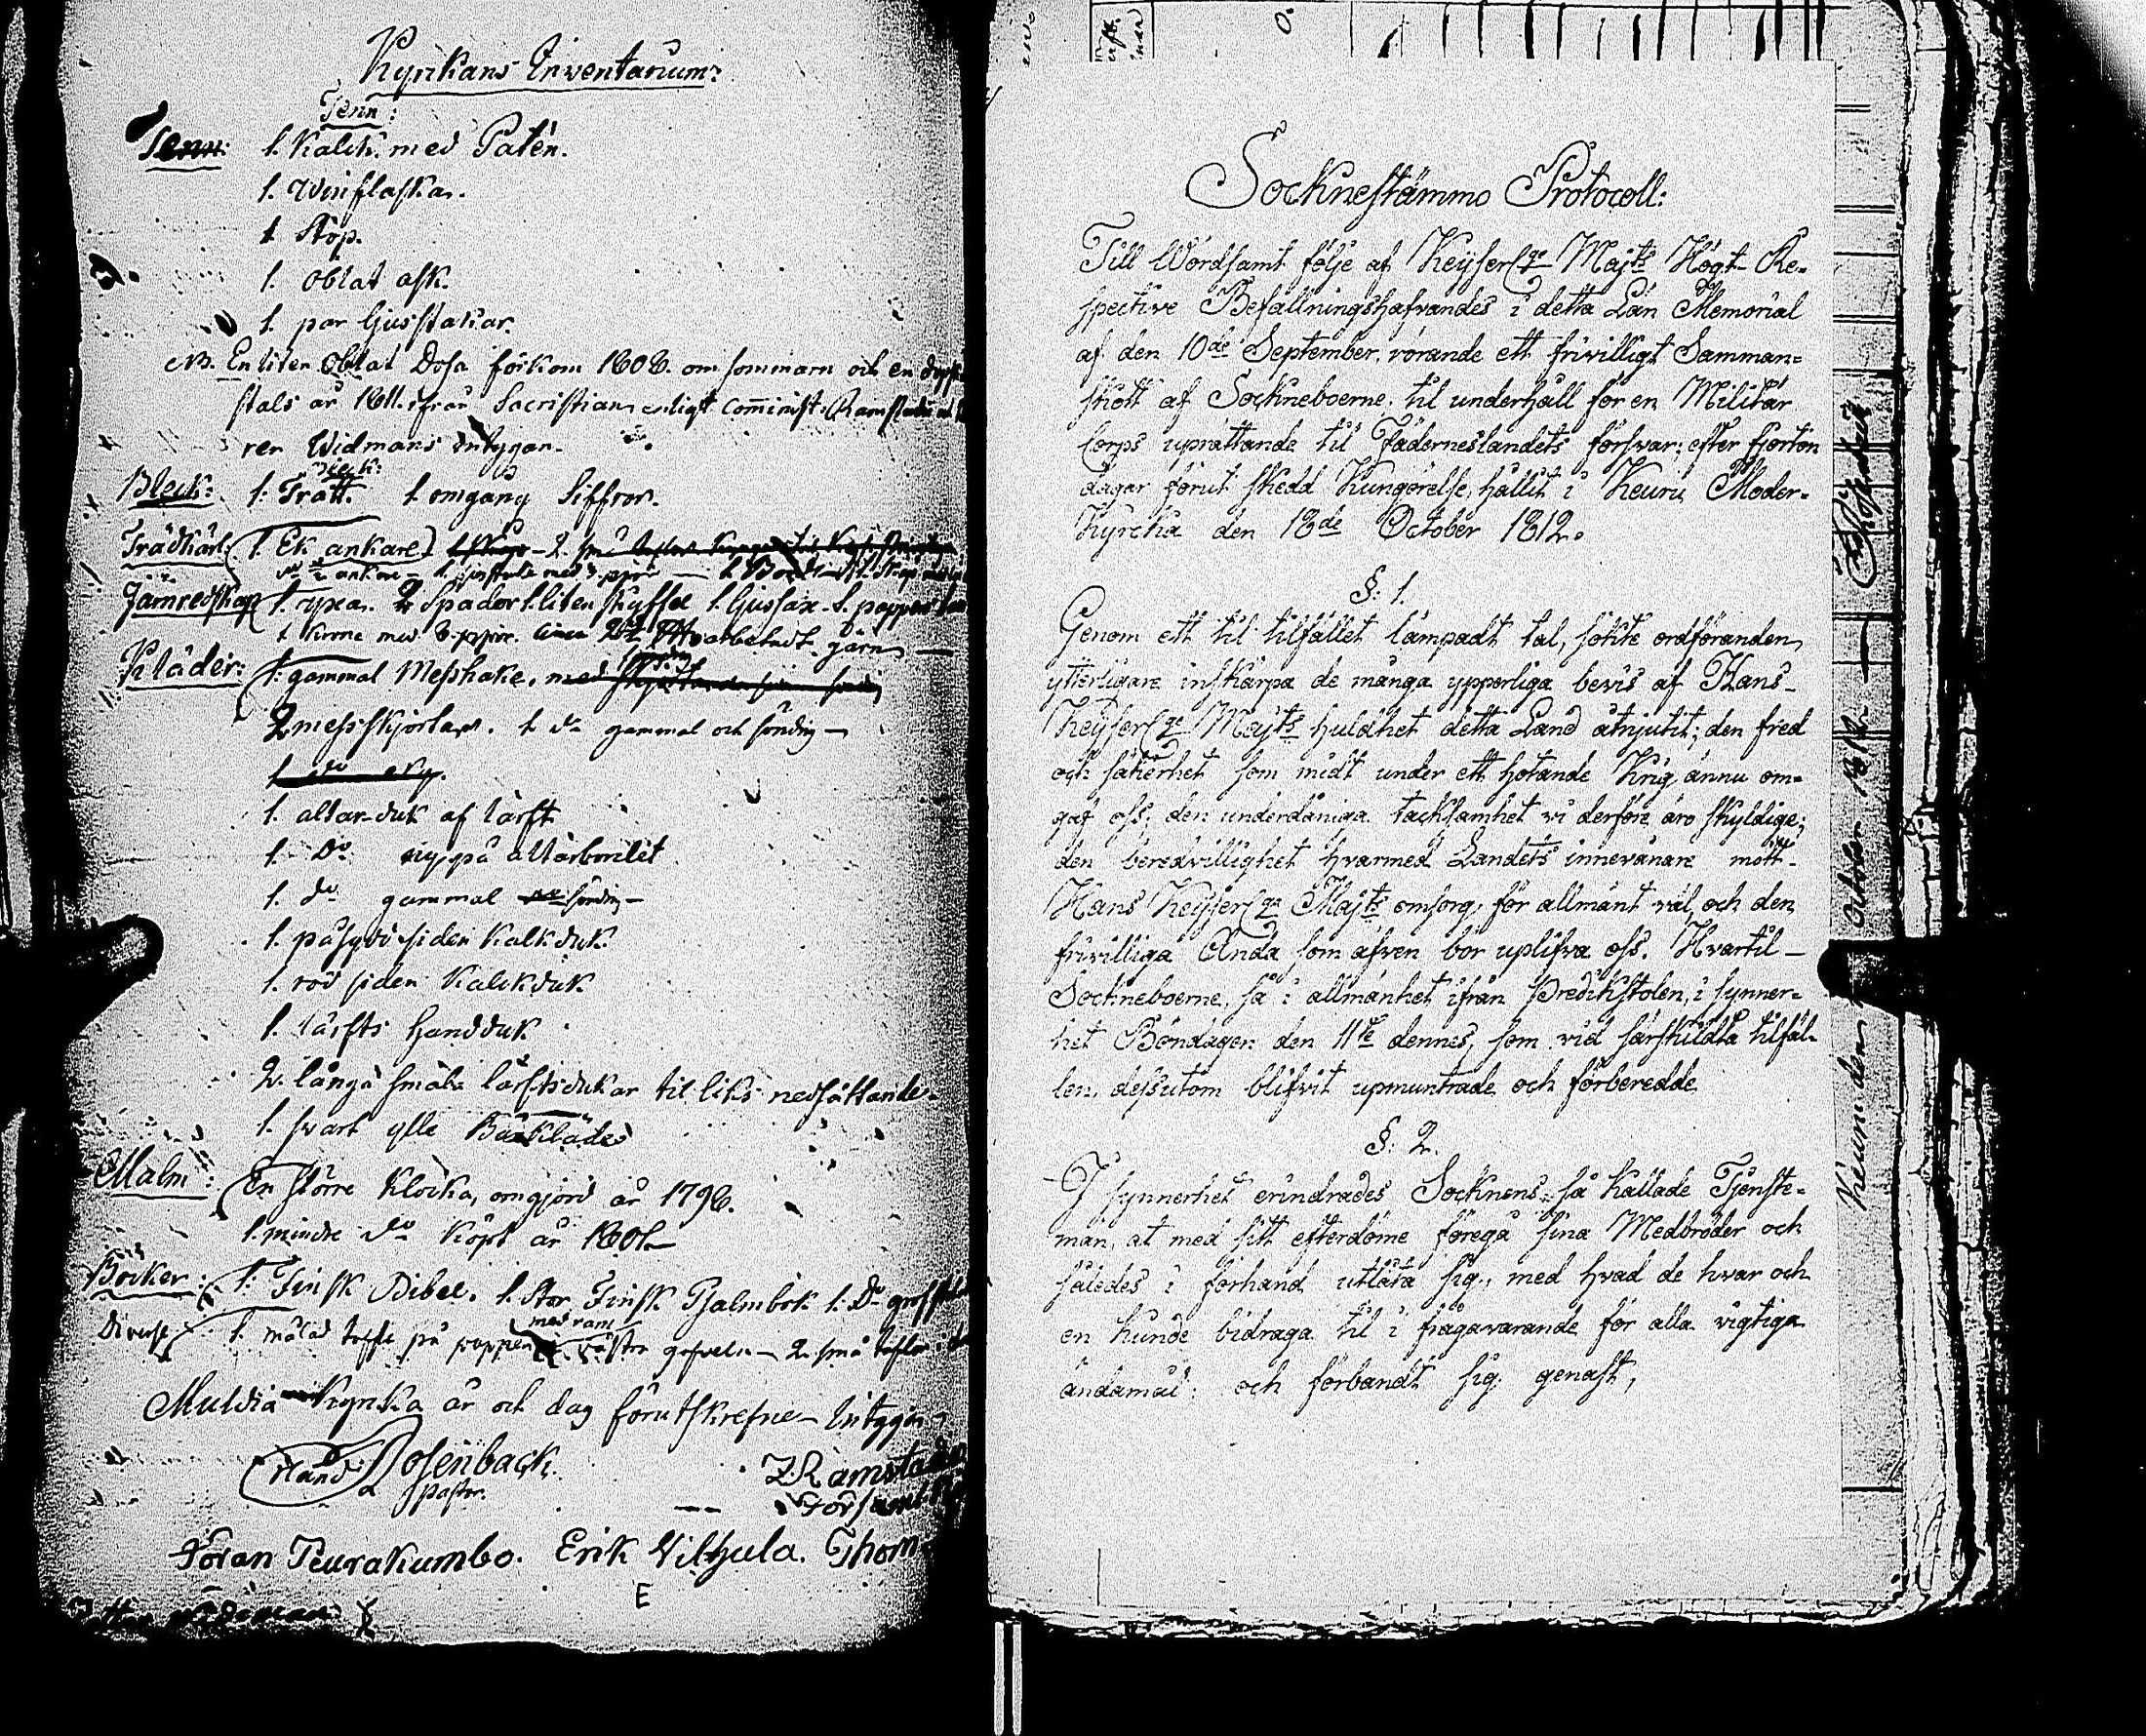 Kyrkans Inventarium:
Tenn:
Tenn: 1. Kalck. med Patén.
1. Winflaska.
1 Stop.
1. Oblat ask.
1. par ljusstakar.
NB. En liten Oblat Dosa förkom 1808. om sommarn och en
stals år 1811. ifrån Sacristian enligt Comminist. Ramstadii
ren Widmans intygan.
Bleck: 1: Tratt. 1 omgång Siffror.
Trädkäril 1. Ek ankare
Järnredskap 1. yxa. 2 Spador 1. liten skyffel 1. ljussax. 1.
Kläder: 1. gammal Messhake.
2 messskjortor. 1 do gammal och söndrig
1. altar-duk af lärft
1. Do ny, på altarbordet
1. do gammal söndrig
1. siden Kalkduk.
1. röd siden Kalckduk
1. lärfts handduk
2. långa smala lärftsdukar til liks nedsättande
1. svart ylle Bårkläde
Malm: En större Klocka, omgjord år 1798.
1. mindre do köpt år 1801
Böcker: 1: Finsk Bibel. 1. Stor Finsk Psalmbok 1. Do
med ram
Diverse 1. målad taffla på pappen gafveln 2. små taflor
Muldia Kyrka år och dag förutskrefne Intyga
Rosenback. Z. Ramstadi
pastor.
Göran Peurakumbo. Erik Vilhula. Thom
E
Socknestämmo Protocoll:
Till Wördsamt följe af Keyserlge Majts Högt-Re-
spective Befallningshafvandes i detta Län Memorial
af den 10de September, rörande ett frivilligt Samman-
skott af Sockneboerne, til underhåll för en Militär
Corps uprättande til Fäderneslandets försvar; efter fjorton
dagar förut skedd Kungörelse, hållit i Keuru Moder-
kyrcka den 18de October 1812.
§: 1.
Genom ett til tilfället lämpadt tal, sökte ordföranden
ytterligare inskärpa de många ypperliga bevis af Hans
Keyserlge Majts huldhet detta Land åtnjutit; den fred
och säkerhet som midt under ett hotande Krig ännu om-
gaf oss; den underdåniga tacksamhet vi derföre äro skyldige;
den beredvillighet hvarmed Landets innevånare mött
Hans Keyserlga Majts omsorg, för allmänt väl, och den
frivilliga Anda som äfven bör uplifva oss. Hvartil
Sockneboerne, så i allmänhet ifrån Predikstolen, i synner-
het Böndagen den 11te dennes, som vid särskildta tilfäl-
len, dessutom blifvit upmuntrade och förberedde
§: 2.
I synnerhet erindrades Socknens så kallade Tjenste-
män, at med sitt efterdöme föregå sina Medbröder och
således i förhand utlåta sig, med hvad de hvar och
en kunde bidraga til i frågavarande för alla vigtiga
ändamål; och förbandt sig genast,
Keuru den October 1812